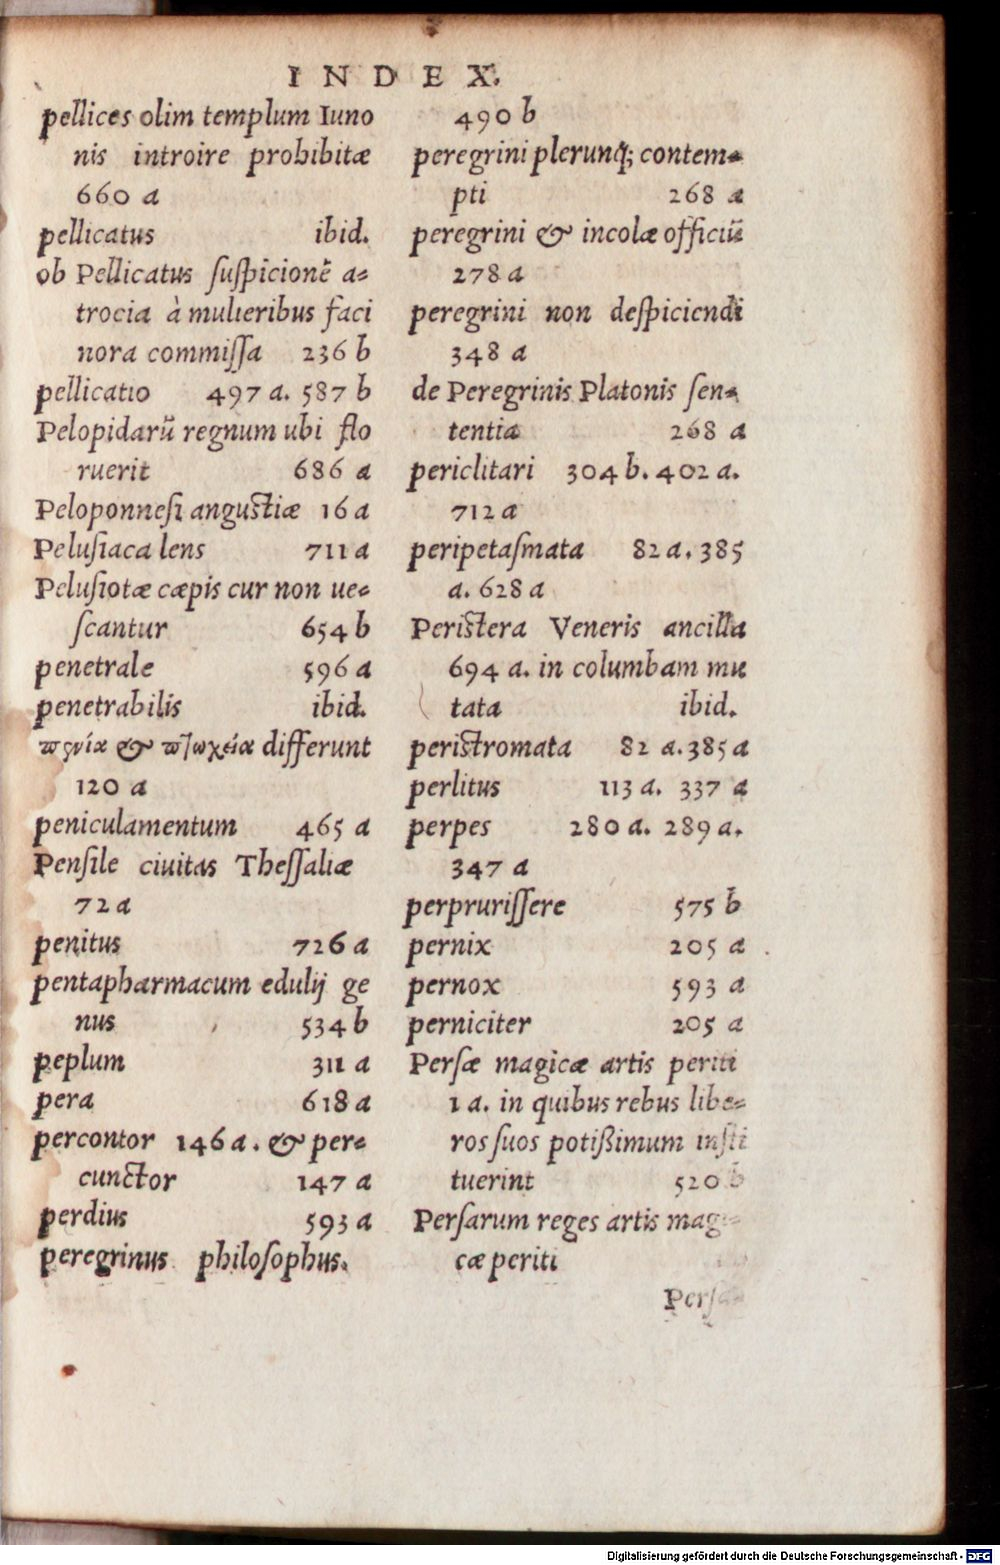 INDEX.
pellices olim templum Iuno
nis introire prohibitæ
660 a
pellicatus ibid.
ob Pellicatus ſuſpicionẽ a-
trocia à mulieribus faci
nora commiſſa 236 b
pellicatio 497 a. 587 b
Pelopidarũ regnum ubi flo
ruerit 686 a
Peloponneſi anguſtiæ 16 a
Peluſiaca lens 711 a
Peluſiotæ cæpis cur non ue-
ſcantur 654 b
penetrale 596 a
penetrabilis ibid.
πενία & πτωχεία differunt
120 a
peniculamentum 465 a
Penſile ciuitas Theſſaliæ
72 a
penitus 726 a
pentapharmacum edulij ge
nus 534 b
peplum 311 a
pera 618 a
percontor 146 a. & per-
cunctor 147 a
perdius 593 a
peregrinus philoſophus.
490 b
peregrini plerunq; contem-
pti 268 a
peregrini & incolæ officiũ
278 a
peregrini non deſpiciendi
348 a
de Peregrinis Platonis ſen-
tentia 268 a
periclitari 304 b. 402 a.
712 a
peripetaſmata 82 a. 385
a. 628 a
Periſtera Veneris ancilla
694 a. in columbam mu
tata ibid.
periſtromata 82 a. 385 a
perlitus 113 a. 337 a
perpes 280 a. 289 a.
347 a
perpruriſſere 575 b
pernix 205 a
pernox 593 a
perniciter 205 a
Perſæ magicæ artis periti
1 a. in quibus rebus libe-
ros ſuos potißimum inſti
tuerint 520 b
Perſarum reges artis magi-
cæ periti
Digitalisierung gefördert durch die Deutsche Forschungsgemeinschaft - DFG